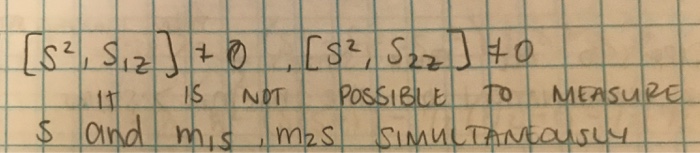 [S², S₁z] ≠ 0 , [S², S₂z] ≠ 0
IT IS NOT POSSIBLE TO MEASURE
S and m₁s , m₂s SIMULTANEOUSLY